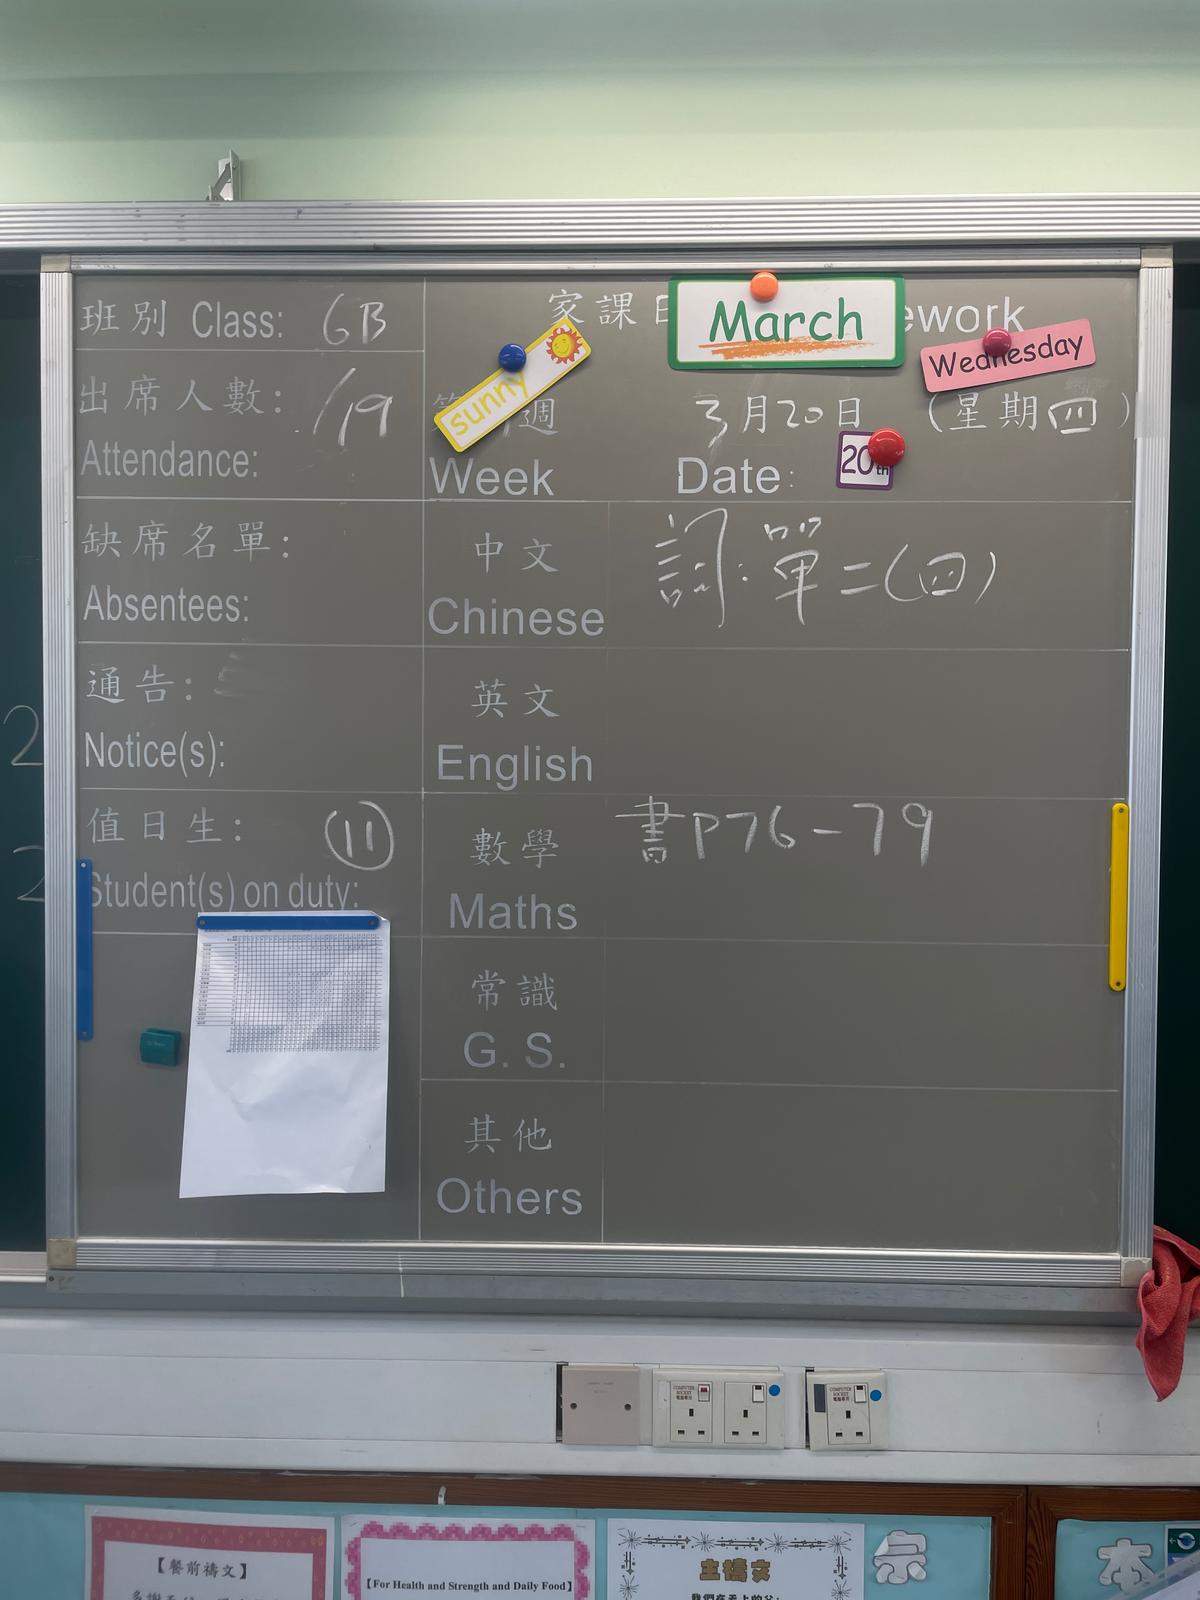 班別 Class: 6B
出席人數: /19
Attendance:
缺席名單:
Absentees:
通告:
Notice(s):
值日生: 11
Student(s) on duty:
家課
ework
March
Wednesday
sunny
週
3月20日 (星期四)
Week
Date:
20th
中文
Chinese
詞:單二(四)
英文
English
數學
Maths
書P76-79
常識
G. S.
其他
Others
2
2
COMPUTER SOCKET
電腦專用
COMPUTER SOCKET
電腦專用
【餐前禱文】
【For Health and Strength and Daily Food】
主禱文
我們在天上的父:
宗
本